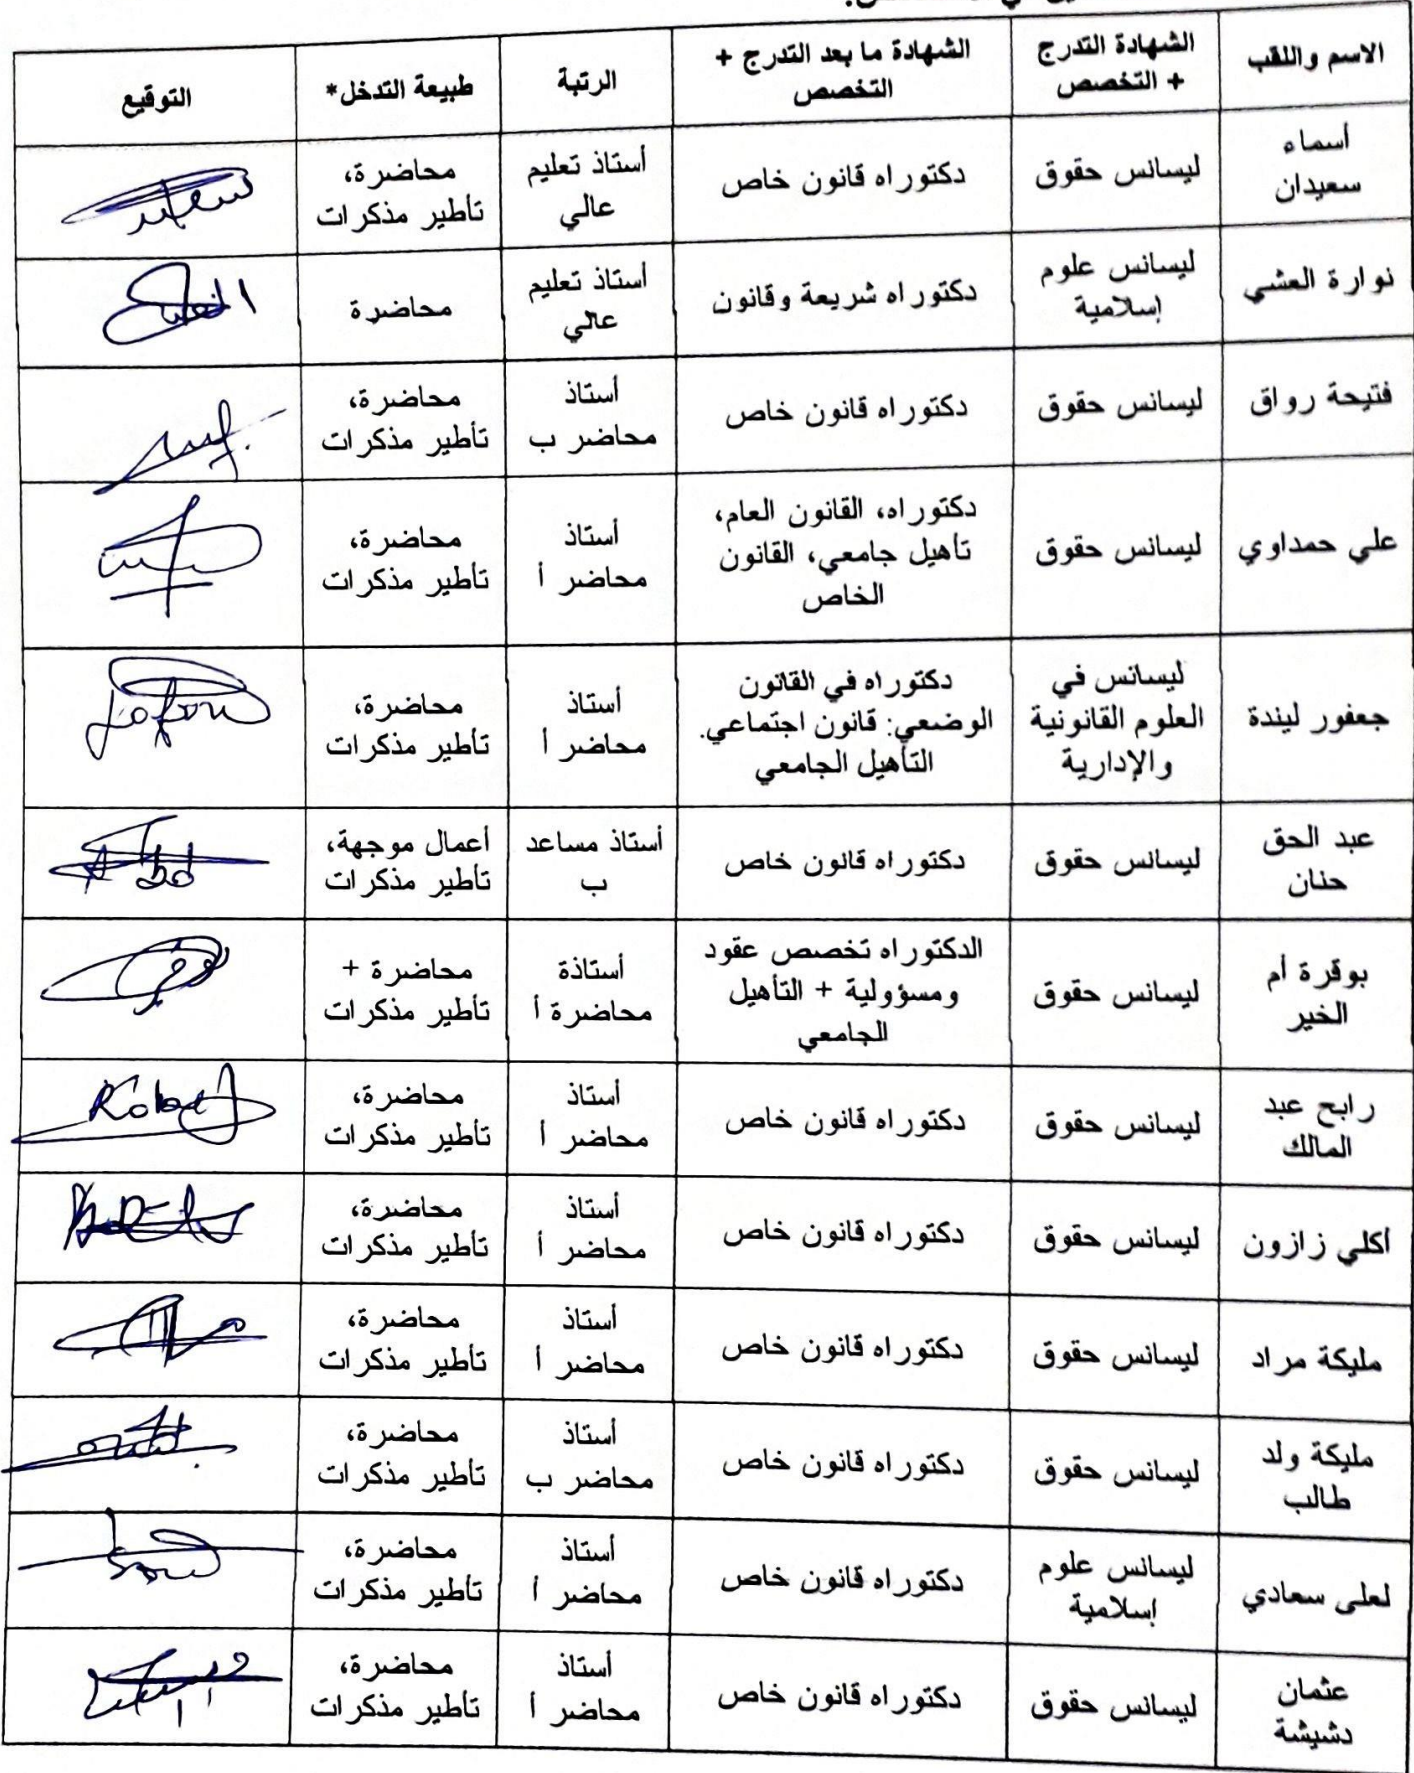 الاسم واللقب
الشهادة التدرج
+ التخصص
الشهادة ما بعد التدرج +
التخصص
الرتبة
طبيعة التدخل*
التوقيع
أسماء
سعيدان
ليسانس حقوق
دكتوراه قانون خاص
أستاذ تعليم
عالي
محاضرة،
تأطير مذكرات
نوارة العشي
ليسانس علوم
إسلامية
دكتوراه شريعة وقانون
أستاذ تعليم
عالي
محاضرة
فتيحة رواق
ليسانس حقوق
دكتوراه قانون خاص
أستاذ
محاضر ب
محاضرة،
تأطير مذكرات
علي حمداوي
ليسانس حقوق
دكتوراه، القانون العام،
تأهيل جامعي، القانون
الخاص
أستاذ
محاضر أ
محاضرة،
تأطير مذكرات
جعفور ليندة
ليسانس في
العلوم القانونية
والإدارية
دكتوراه في القانون
الوضعي: قانون اجتماعي.
التأهيل الجامعي
أستاذ
محاضر أ
محاضرة،
تأطير مذكرات
عبد الحق
حنان
ليسانس حقوق
دكتوراه قانون خاص
أستاذ مساعد
ب
أعمال موجهة،
تأطير مذكرات
بوقرة أم
الخير
ليسانس حقوق
الدكتوراه تخصص عقود
ومسؤولية + التأهيل
الجامعي
أستاذة
محاضرة أ
محاضرة +
تأطير مذكرات
رابح عبد
المالك
ليسانس حقوق
دكتوراه قانون خاص
أستاذ
محاضر أ
محاضرة،
تأطير مذكرات
أكلي زازون
ليسانس حقوق
دكتوراه قانون خاص
أستاذ
محاضر أ
محاضرة،
تأطير مذكرات
مليكة مراد
ليسانس حقوق
دكتوراه قانون خاص
أستاذ
محاضر أ
محاضرة،
تأطير مذكرات
مليكة ولد
طالب
ليسانس حقوق
دكتوراه قانون خاص
أستاذ
محاضر ب
محاضرة،
تأطير مذكرات
لعلى سعادي
ليسانس علوم
إسلامية
دكتوراه قانون خاص
أستاذ
محاضر أ
محاضرة،
تأطير مذكرات
عثمان
دشيشة
ليسانس حقوق
دكتوراه قانون خاص
أستاذ
محاضر أ
محاضرة،
تأطير مذكرات